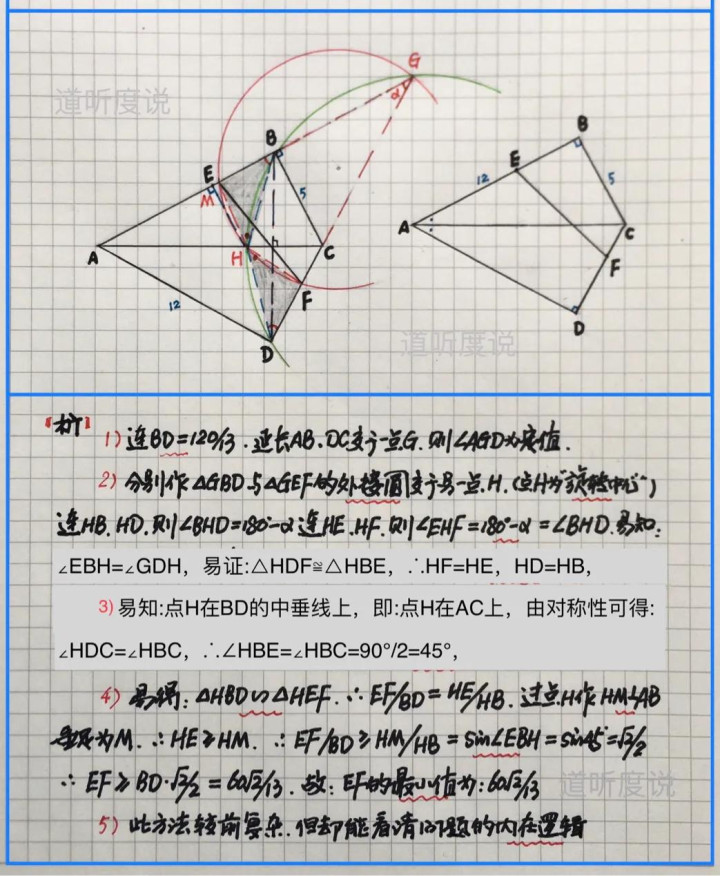 道听度说
G
α
B
E
M
5
A
H
C
12
F
D
B
E
12
5
A
C
F
D
道听度说
【析】1) 连BD=120/13. 延长AB、DC交于一点G. 则∠AGD为定值.
2) 分别作△GBD与△GEF的外接圆交于另一点H. (点H为"旋转中心")
连HB、HD. 则∠BHD=180°-α 连HE、HF. 则∠EHF=180°-α=∠BHD. 易知:
∠EBH=∠GDH，易证:△HDF≌△HBE，∴HF=HE，HD=HB，
3) 易知:点H在BD的中垂线上，即:点H在AC上，由对称性可得:
∠HDC=∠HBC，∴∠HBE=∠HBC=90°/2=45°，
4) 易得: △HBD∽△HEF. ∴EF/BD=HE/HB. 过点H作HM⊥AB
垂足为M. ∴HE≥HM. ∴EF/BD≥HM/HB=sin∠EBH=sin45°=√2/2
∴EF≥BD·√2/2=60√2/13. 故: EF的最小值为: 60√2/13
道听度说
5) 此方法较前复杂. 但却能看清问题的内在逻辑